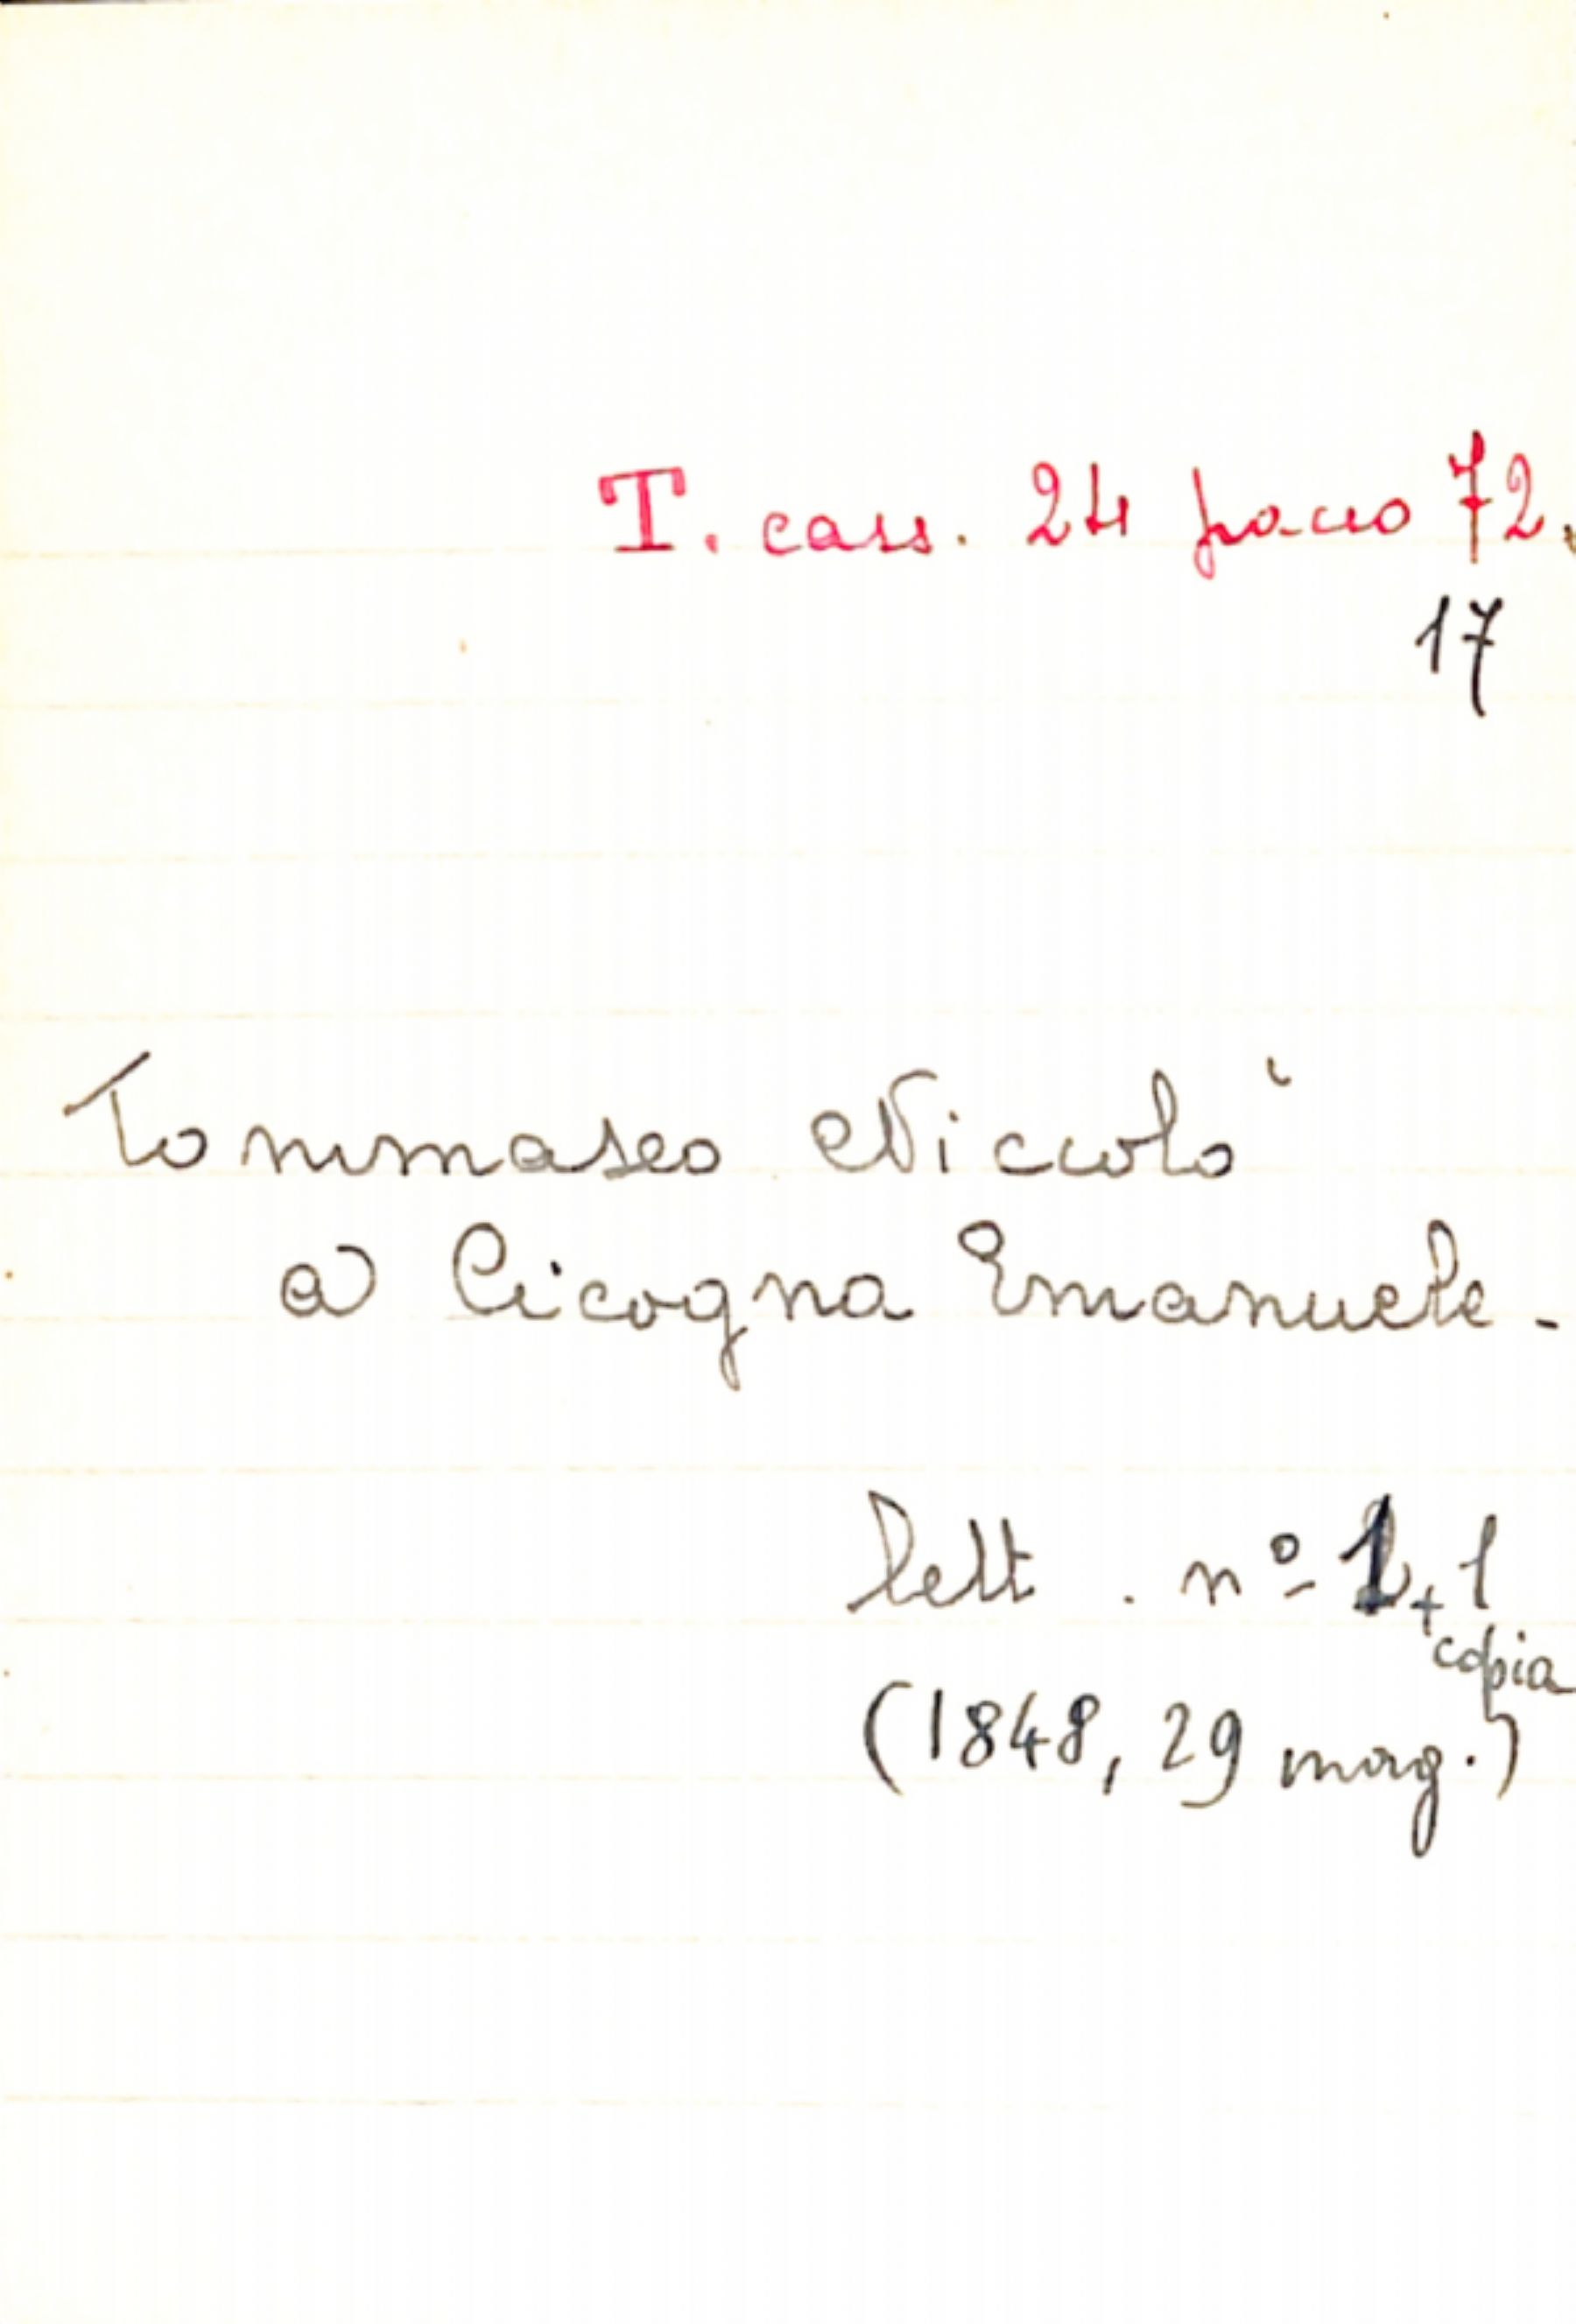 T. cass. 24 pacco 72.
17
Tommaseo Niccolò
a Cicogna Emanuele.
lett. nº 1 + 1
copia
(1848, 29 mag.)